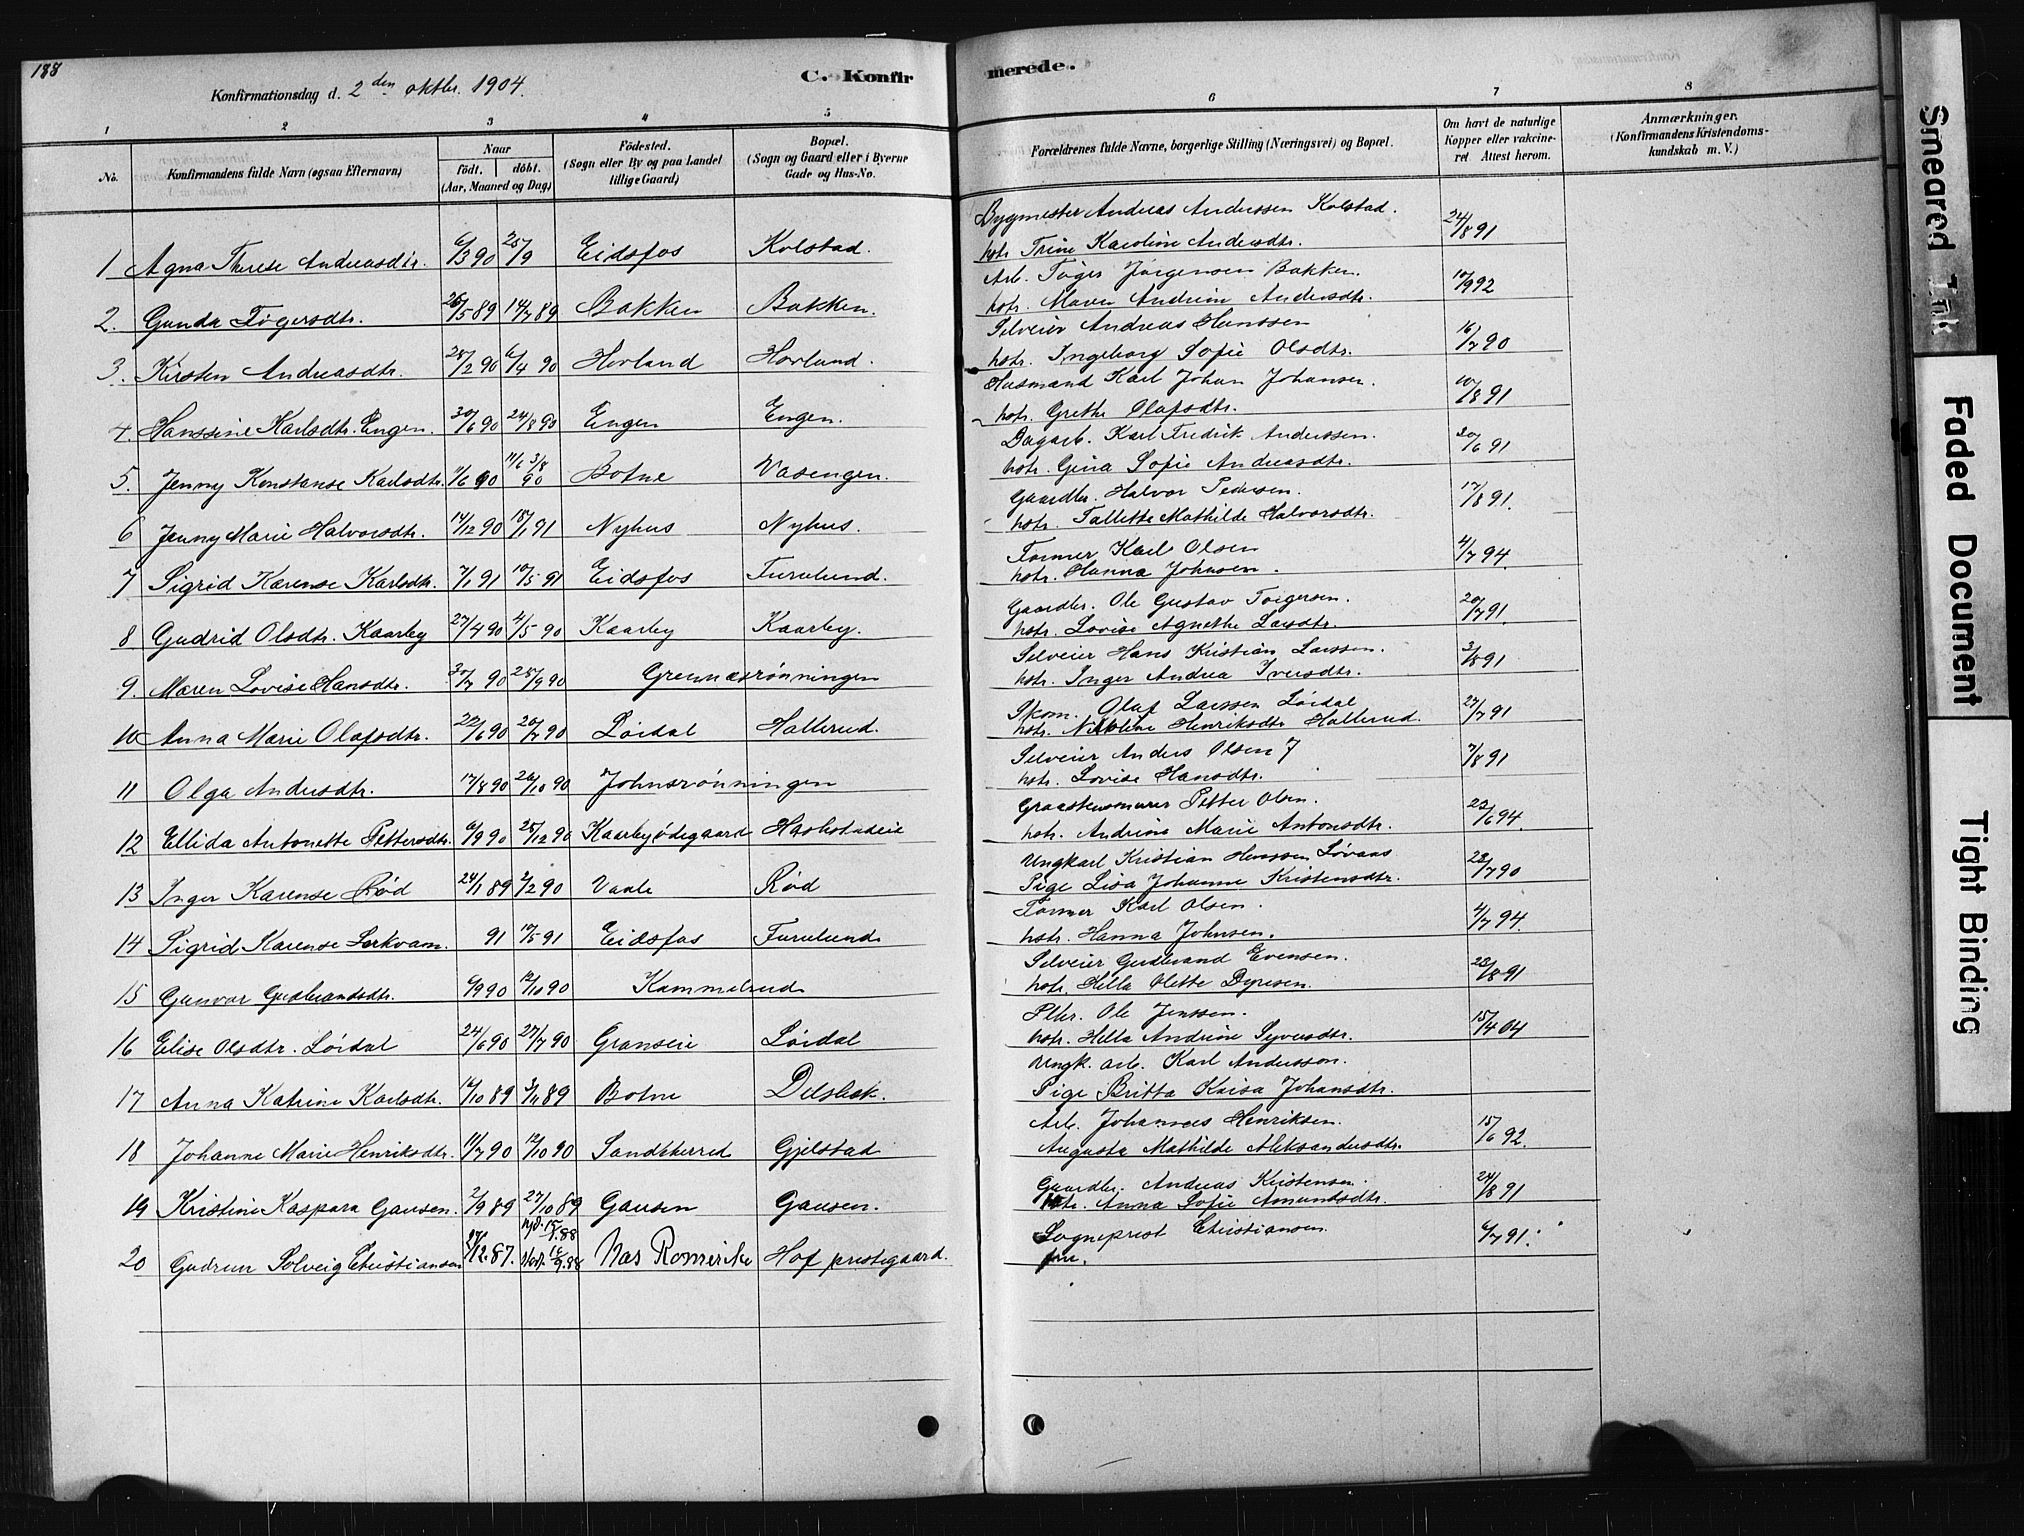 188
Konfirmationsdag d. 2den oktbr. 1904.
C. Konfirmerede.
1 2 3 4 5 6 7 8
No.
Konfirmandens fulde Navn (ogsaa Efternavn)
Naar
født. døbt.
(Aar, Maaned og Dag)
Fødested.
(Sogn eller By og paa Landet tillige Gaard)
Bopæl.
(Sogn og Gaard eller i Byerne Gade og Hus-No.
Forældrenes fulde Navne, borgerlige Stilling (Næringsvei) og Bopæl.
Om havt de naturlige Kopper eller vakcineret Attest herom.
Anmærkninger.
(Konfirmandens Kristendomskundskab m. V.)
1 Agna Therese Andreasdtr. 6/3 90 25/9 Eidsfos Kolstad. Bygmester Andreas Anderssen Kolstad. 24/8 91
hstr. Trine Karoline Andersdtr.
2. Gunda Tøgersdtr. 26/5 89 14/7 89 Bakken Bakken. Arb. Tøger Jørgensen Bakken. 10/9 92
hstr. Maren Andrine Andersdtr.
3. Kirsten Andreasdtr. 28/2 90 6/4 90 Hovland Hovland. Selveier Andreas Hanssen 16/7 90
hstr. Ingeborg Sofie Olsdtr.
4. Hanssine Karlsdtr. Engen. 30/6 90 24/8 90 Engen Engen. Husmand Karl Johan Johansen. 10/8 91
hstr. Grethe Olafsdtr.
5. Jenny Konstanse Karlsdtr. 11/6 90 3/8 90 Botne Vasengen. Dagarb. Karl Fredrik Anderssen. 20/6 91
hstr. Gina Sofie Andreasdtr.
6 Jenny Marie Halvorsdtr. 14/12 90 18/1 91 Nyhus Nyhus. Gaardbr. Halvor Pedersen. 17/8 91.
hstr. Tallette Mathilde Halvorsdtr.
7 Sigrid Karense Karlsdtr. 7/1 91 10/5 91 Eidsfos Furulund. Former Karl Olsen 4/7 94.
hstr. Hanna Johnsen.
8 Gudrid Olsdtr. Kaarby 27/4 90 4/5 90 Kaarby Kaarby. Gaardbr. Ole Gustav Torgersen. 20/7 91.
hstr. Lovise Agnethe Larsdtr.
9. Maren Lovise Hansdtr. 30/7 90 28/9 90 Grennesrønningen Selveier Hans Kristian Larssen. 3/8 91
hstr. Inger Andrea Iversdtr.
10 Anna Marie Olafsdtr. 22/6 90 20/7 90 Løidal Hallerud. Skom. Olaf Larssen Løidal 27/7 91
hstr. Nikoline Henriksdtr Hallerud.
11 Olga Andersdtr. 17/8 90 26/10 90 Johnsrønningen Selveier Anders Olsen 7/8 91
hstr. Lovise Hansdtr.
12 Ellida Antonette Pettersdtr. 6/9 90 25/12 90 Kaarbyødegaard Graastensmurer Petter Olsen. 22/6 94.
hstr. Andrine Marie Antonsdtr.
13 Inger Karense Rød 24/1 89 2/2 90 Vaale Rød Ungkarl Kristian Hanssen Løvaas 22/7 90
Pige Lisa Johanne Kristensdtr.
14 Sigrid Karense 91 10/5 91 Eidsfos Furulund Former Karl Olsen. 4/7 94.
hstr. Hanna Johnsen.
15 Gunvor Gudbrandsdtr. 6/9 90 12/10 90 Kammelrud Selveier Gudbrand Evensen. 28/8 91
hstr. Hella Olette Dyresen.
16 Elise Olsdtr. Løidal 24/6 90 27/7 90 Granseie Løidal Ole Jenssen. 15/4 04
hstr. Hella Andrine Syversdtr.
17 Anna Katrine Karlsdtr. 16/10 89 3/11 89 Botne Delsbek. Ungk. arb. Karl Andersson.
Pige Britta Kaisa Johansdtr.
18 Johanne Marie Henriksdtr. 11/7 90 12/10 90 Sandsherred Gjelstad Arb. Johannes Henriksen. 15/6 92.
Augusta Mathilde Aleksandersdtr.
19 Kristine Kaspara Gausen. 2/9 89 27/10 89 Gausen Gausen. Gaardbr. Andreas Kristensen. 24/8 91
hstr. Anna Sofie Amundsdtr.
20 Gudrun Solveig Christiansen 27/12.87. Nes Romerike Hof prestegaard. Sogneprest Christiansen. 6/7 91.
fru.
Smeared Ink
Faded Document
Tight Binding